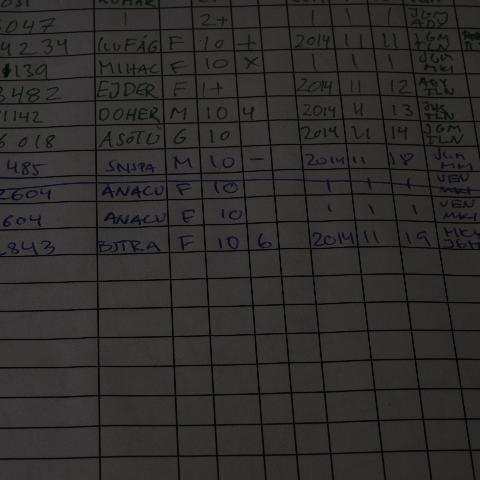 5047 2+ 1 1 1 JGM
4234 F 10 + 2014 11 11 JGM TLN
139 MIHAC F 10 X 1 1 1 JGM MKI
3482 EJDER F 1+ 2014 11 12 TLN
1142 DOHER M 10 4 2014 11 13 TLN
6018 ASOTU G 10 2014 11 14 JGM TLN
485 M 10 - 2014 11 18 JGM MKI
2604 ANACU F 10 1 1 1 VEN MKI
604 ANACU F 10 1 1 1 VEN MKI
2843 BITRA F 10 6 2014 11 19 MKI JGM